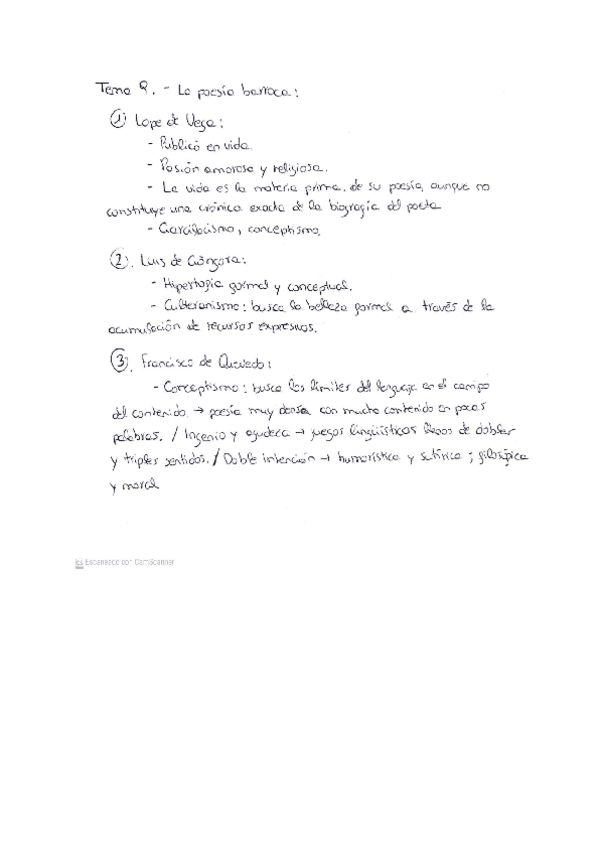 Tema 9. - La poesía barroca:
① Lope de Vega:
- Publicó en vida.
- Pasión amorosa y religiosa.
- La vida es la materia prima de su poesía, aunque no
constituye una crónica exacta de la biografía del poeta
- Garcilacismo, conceptismo.
② Luis de Góngora:
- Hipertrofia formal y conceptual.
- Culteranismo: busca la belleza formal a través de la
acumulación de recursos expresivos.
③ Francisco de Quevedo:
- Conceptismo: busca los límites del lenguaje en el campo
del contenido → poesía muy densa con mucho contenido en pocas
palabras. / Ingenio y agudeza → juegos lingüísticos llenos de dobles
y triples sentidos. / Doble intención → humorística y satírica; filosófica
y moral
CS Escaneado con CamScanner